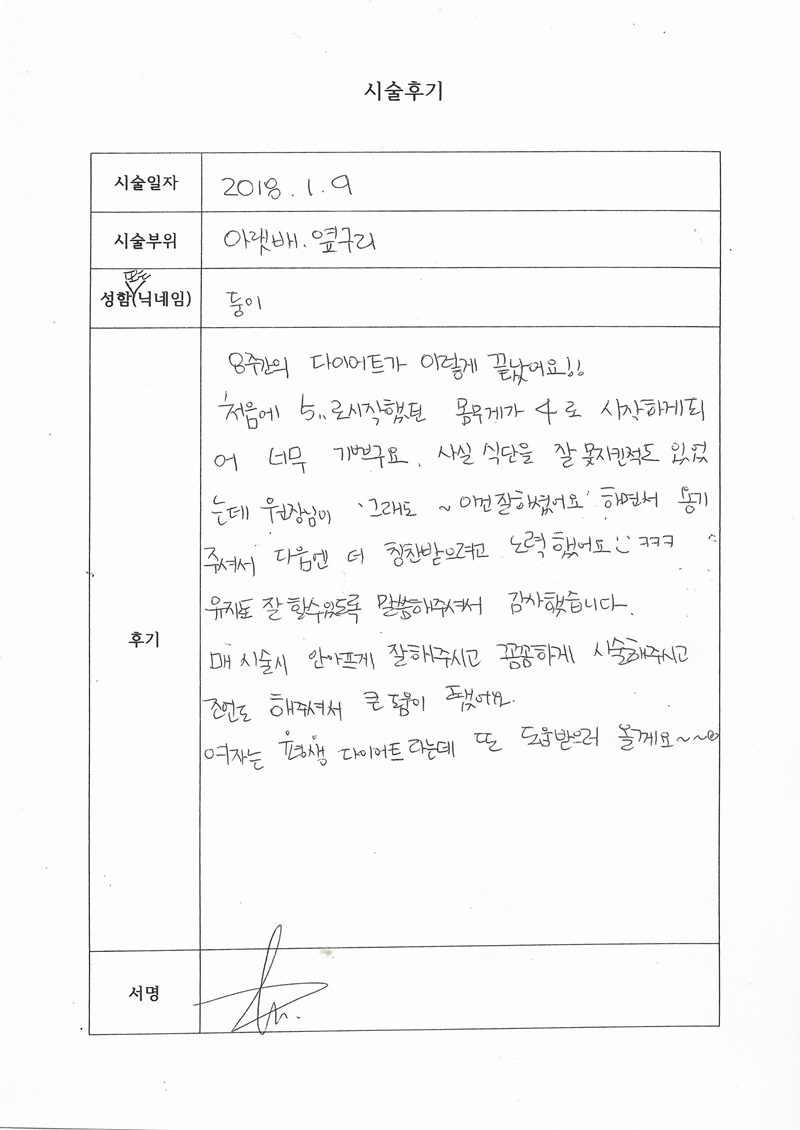 시술후기
시술일자 2018.1.9
시술부위 아랫배.옆구리
또는
성함(닉네임) 둥이
후기
8주간의 다이어트가 이렇게 끝났어요!!
처음에 5.. 로시작했던 몸무게가 4로 시작하게되
어 너무 기쁘구요. 사실 식단을 잘 못지킨적도 있었
는데 원장님이 '그래도 ~ 이건잘하셨어요' 하면서 용기
주셔서 다음엔 더 칭찬받으려고 노력했어요 ㅋㅋㅋ
유지도 잘 할수있도록 말씀해주셔서 감사했습니다.
매 시술시 안아프게 잘해주시고 꼼꼼하게 시술해주시고
조언도 해주셔서 큰 도움이 됐어요.
여자는 평생 다이어트라는데 또 도움받으러 올께요~~
서명